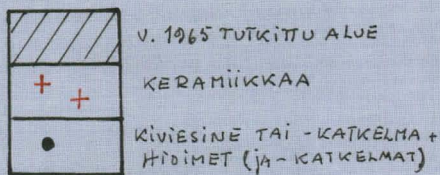 V. 1965 TUTKITTU ALUE
KERAMIIKKAA
KIVIESINE TAI -KATKELMA +
HIOIMET (JA -KATKELMAT)